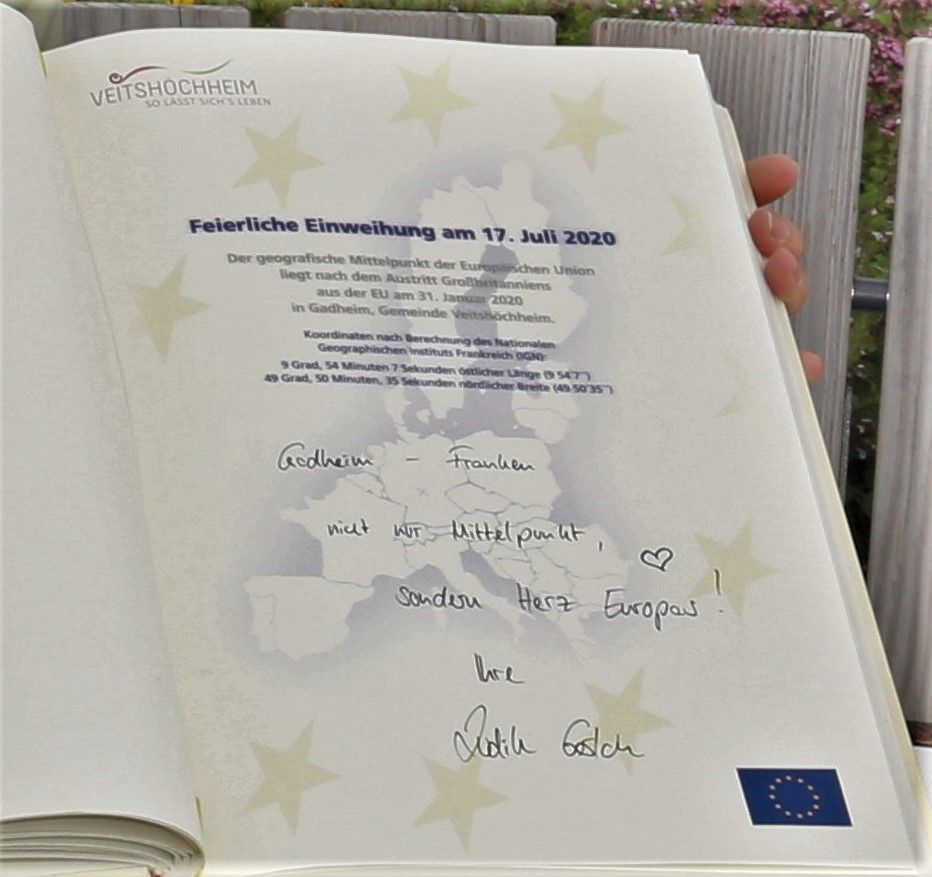 VEITSHÖCHHEIM
SO LÄSST SICH'S LEBEN
Feierliche Einweihung am 17. Juli 2020
Der geografische Mittelpunkt der Europäischen Union
liegt nach dem Austritt Großbritanniens
aus der EU am 31. Januar 2020
in Gadheim, Gemeinde Veitshöchheim.
Koordinaten nach Berechnung des Nationalen
Geographischen Instituts Frankreich (IGN):
9 Grad, 54 Minuten 7 Sekunden östlicher Länge (9 54'7")
49 Grad, 50 Minuten, 35 Sekunden nördlicher Breite (49 50'35")
Gadheim - Franken
nicht nur Mittelpunkt,
sondern Herz Europas!
Ihre